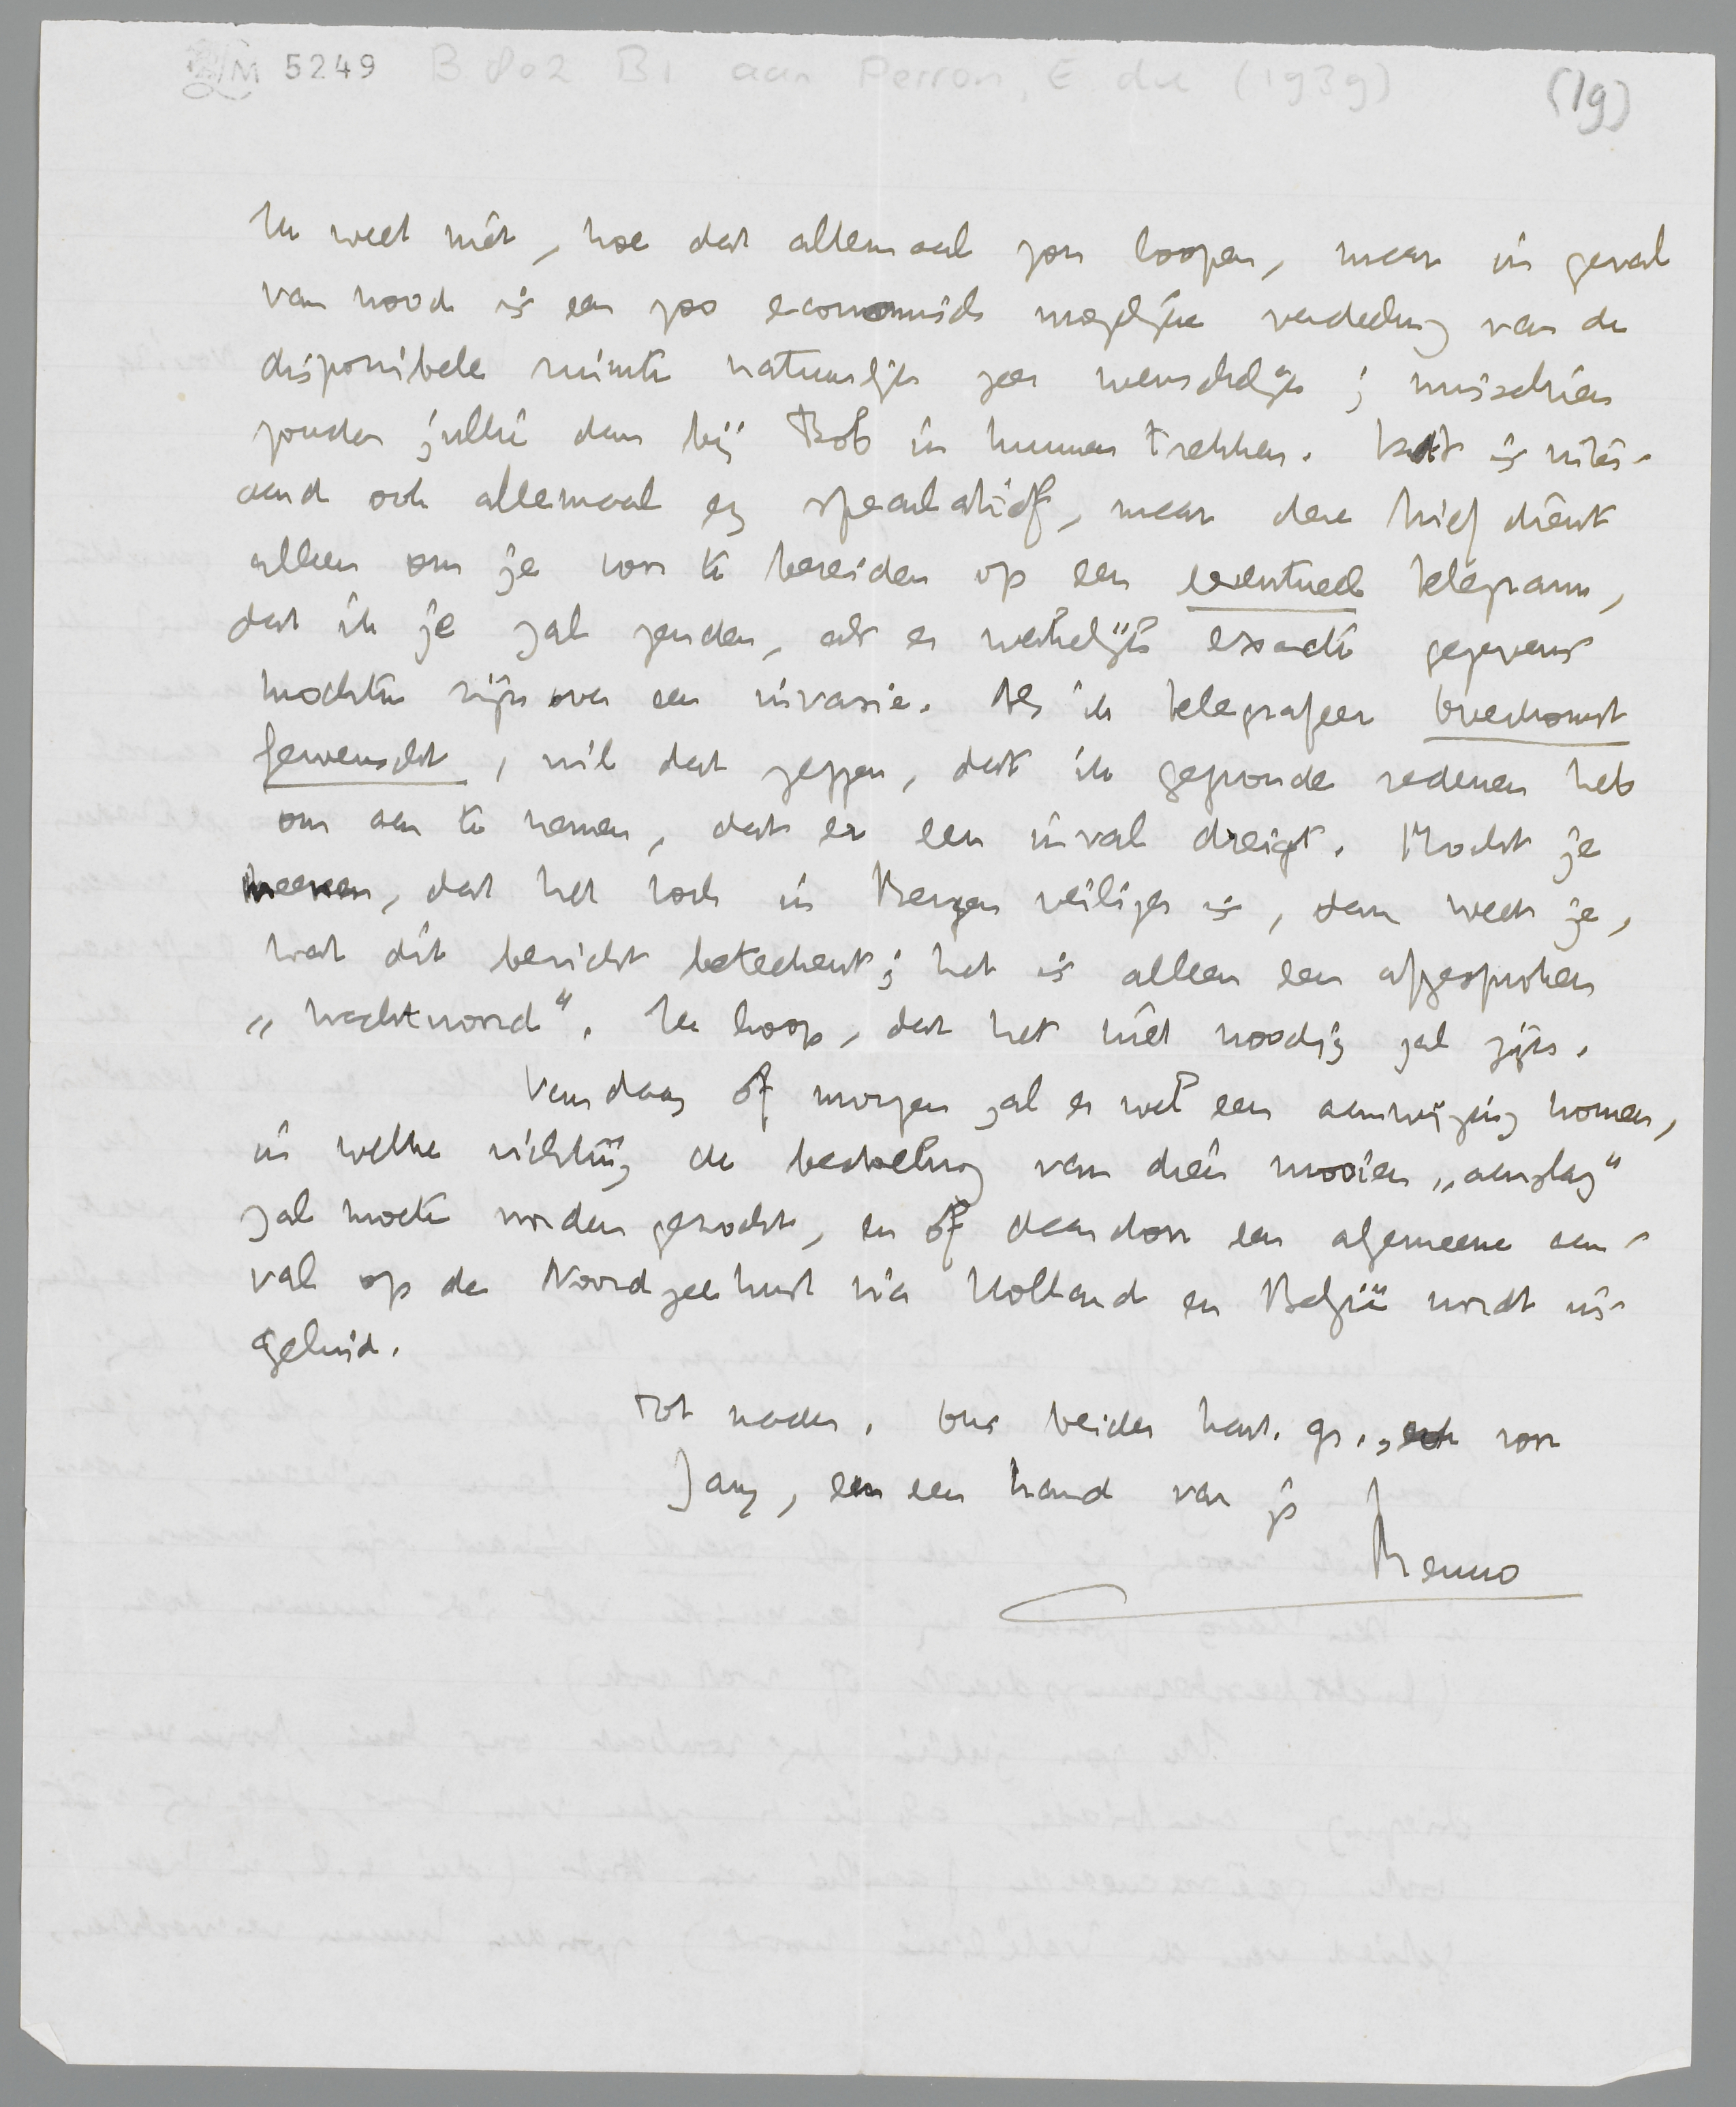 LM 5249 B 802 B1 aan Perron, E. du (1939) (19)
Ik weet niet, hoe dat allemaal zou loopen, maar in geval
van nood is een zoo economisch mogelijke verdeeling van de
disponibele ruimte natuurlijk zeer wenschelijk; misschien
zouden jullie dan bij Bob in kunnen trekken. Dat is uiter-
aard ook allemaal erg speculatief, maar deze brief dient
alleen om je voor te bereiden op een eventueel telegram,
dat ik je zal zenden, als er werkelijk exacte gegevens
mochten zijn over een invasie. Als ik telegrafeer Overkomst
gewenscht, wil dat zeggen, dat ik gegronde redenen heb
om aan te nemen, dat er een inval dreigt. Mocht je
meenen, dat het toch in Bergen veiliger is, dan weet je,
wat dit bericht beteekent; het is alleen een afgesproken
„wachtwoord“. Ik hoop, dat het niet noodig zal zijn.
Vandaag of morgen zal er wel een aanwijzing komen,
in welke richting de bedoeling van dien mooien „aanslag“
zal moeten worden gezocht, en of daardoor een algemeene aan-
val op de Noordzeekust via Holland en België wordt in-
geluid.
Tot nader. Ons beider hart. gr., ook voor
Jany, en een hand van je
Menno